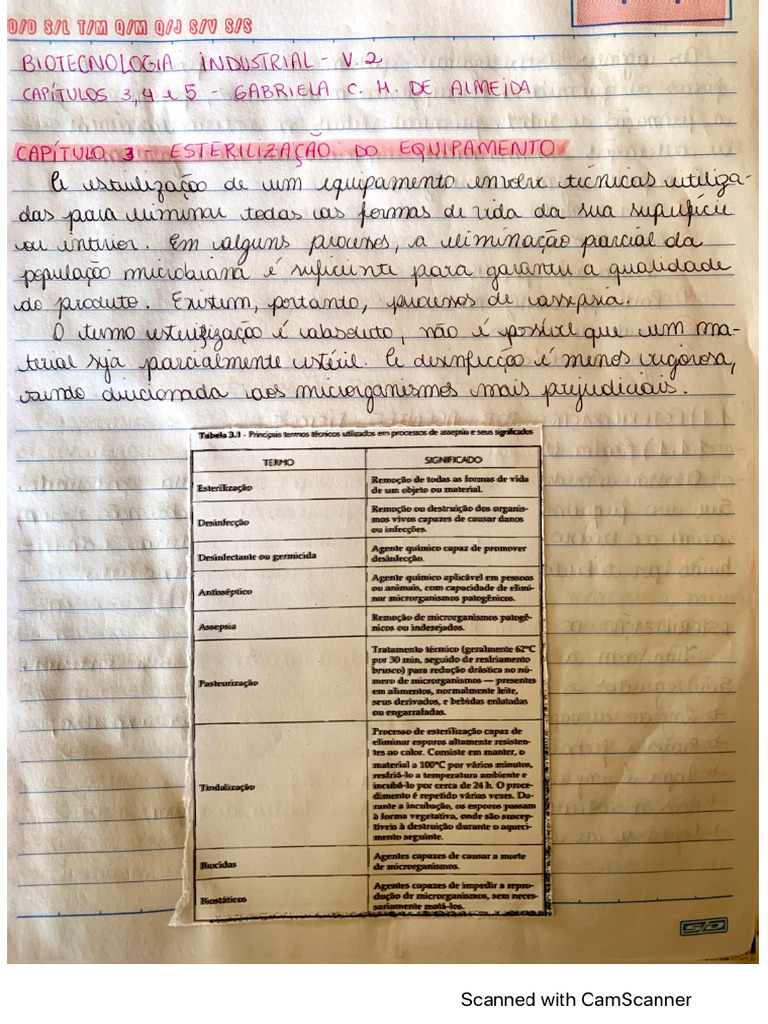 D/D S/L T/M Q/M Q/J S/V S/S
BIOTECNOLOGIA INDUSTRIAL - V. 2
CAPÍTULOS 3, 4 e 5 - GABRIELA C. H. DE ALMEIDA
CAPÍTULO 3 ESTERILIZAÇÃO DO EQUIPAMENTO
A esterilização de um equipamento envolve técnicas utiliza-
das para eliminar todas as formas de vida da sua superfície
ou interior. Em alguns processos, a eliminação parcial da
população microbiana é suficiente para garantir a qualidade
do produto. Existem, portanto, processos de assepsia.
O termo esterilização é absoluto, não é possível que um ma-
terial seja parcialmente estéril. A desinfecção é menos rigorosa,
sendo direcionada aos microrganismos mais prejudiciais.
Tabela 3.1 - Principais termos técnicos utilizados em processos de assepsia e seus significados
TERMO SIGNIFICADO
Esterilização
Remoção de todas as formas de vida
de um objeto ou material.
Desinfecção
Remoção ou destruição dos organis-
mos vivos capazes de causar danos
ou infecções.
Desinfectante ou germicida
Agente químico capaz de promover
desinfecção.
Antisséptico
Agente químico aplicável em pessoas
ou animais, com capacidade de elimi-
nar microrganismos patogênicos.
Assepsia
Remoção de microrganismos patogê-
nicos ou indesejados.
Pasteurização
Tratamento térmico (geralmente 62°C
por 30 min, seguido de resfriamento
brusco) para redução drástica no nú-
mero de microrganismos — presentes
em alimentos, normalmente leite,
seus derivados, e bebidas enlatadas
ou engarrafadas.
Tindalização
Processo de esterilização capaz de
eliminar esporos altamente resisten-
tes ao calor. Consiste em manter, o
material a 100°C por vários minutos,
resfriá-lo a temperatura ambiente e
incubá-lo por cerca de 24 h. O proce-
dimento é repetido várias vezes. Du-
rante a incubação, os esporos passam
à forma vegetativa, onde são suscep-
tíveis à destruição durante o aqueci-
mento seguinte.
Biocidas
Agentes capazes de causar a morte
de microrganismos.
Biostáticos
Agentes capazes de impedir a repro-
dução de microrganismos, sem neces-
sariamente matá-los.
Scanned with CamScanner